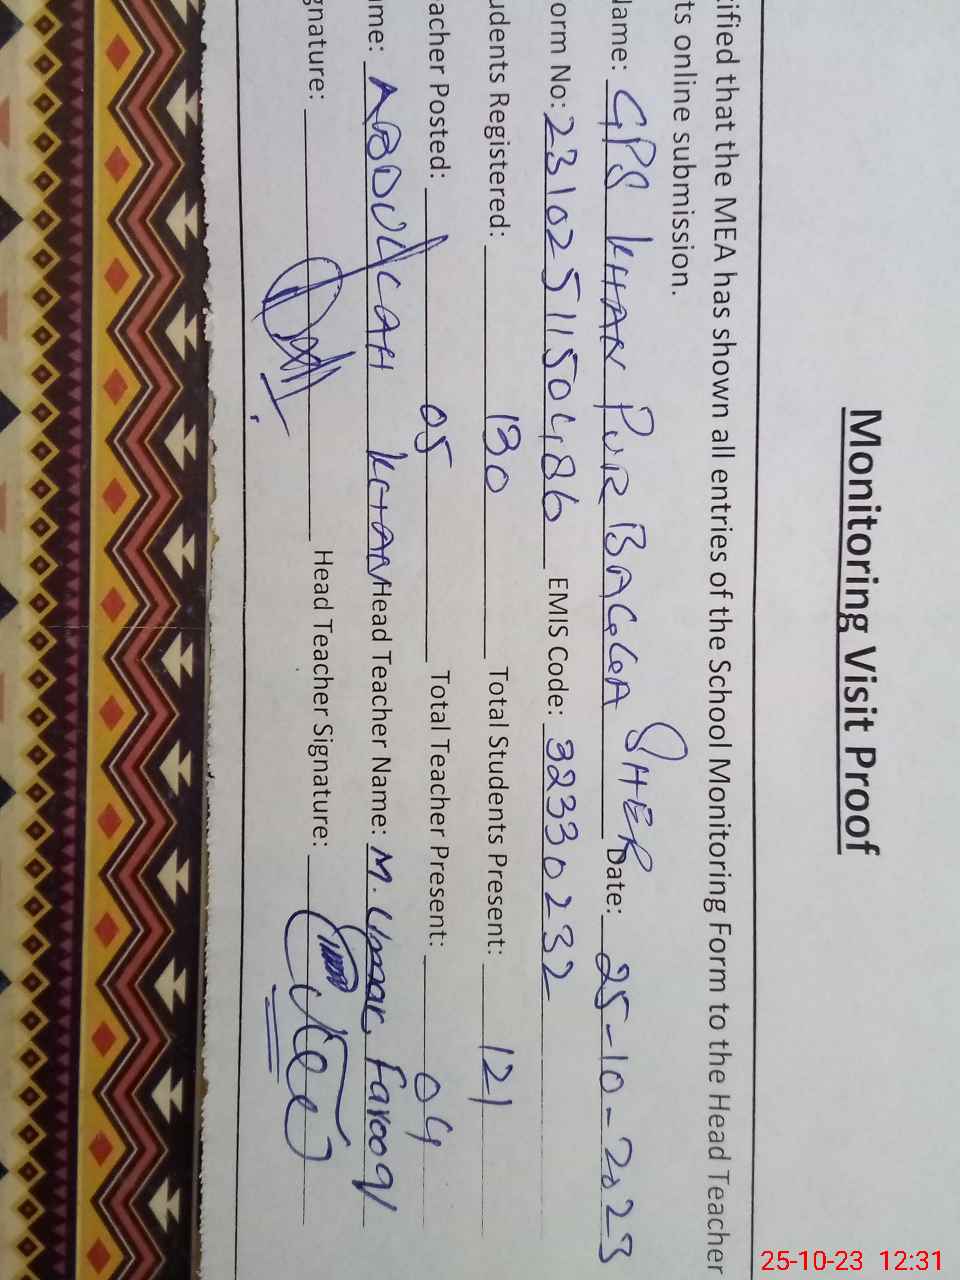 Monitoring Visit Proof
ified that the MEA has shown all entries of the School Monitoring Form to the Head Teacher
ts online submission.
Name: GPS KHAN PUR BAGGA SHER Date: 25-10-2023
orm No: 23102511504186 EMIS Code: 32330232
udents Registered: 130 Total Students Present: 121
acher Posted: 05 Total Teacher Present: 04
me: ABDULLAH KHAN Head Teacher Name: M. Umar Farooq
gnature: Head Teacher Signature:
25-10-23 12:31